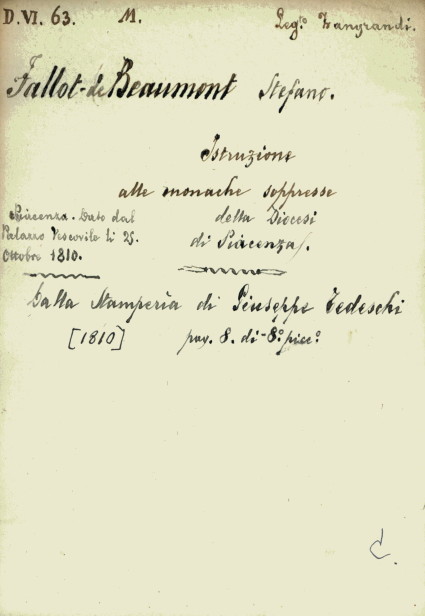 D.VI. 63. M. Leg.to Zangrandi.
Fallot-de Beaumont Stefano.
Istruzione
alle monache soppresse
della Diocesi
di Piacenza.
Piacenza. Dato dal
Palazzo Vescovile li 25.
Ottobre 1810.
Dalla Stamperia di Giuseppe Tedeschi
[1810] pag. 8. di 8.° picc.°
C.